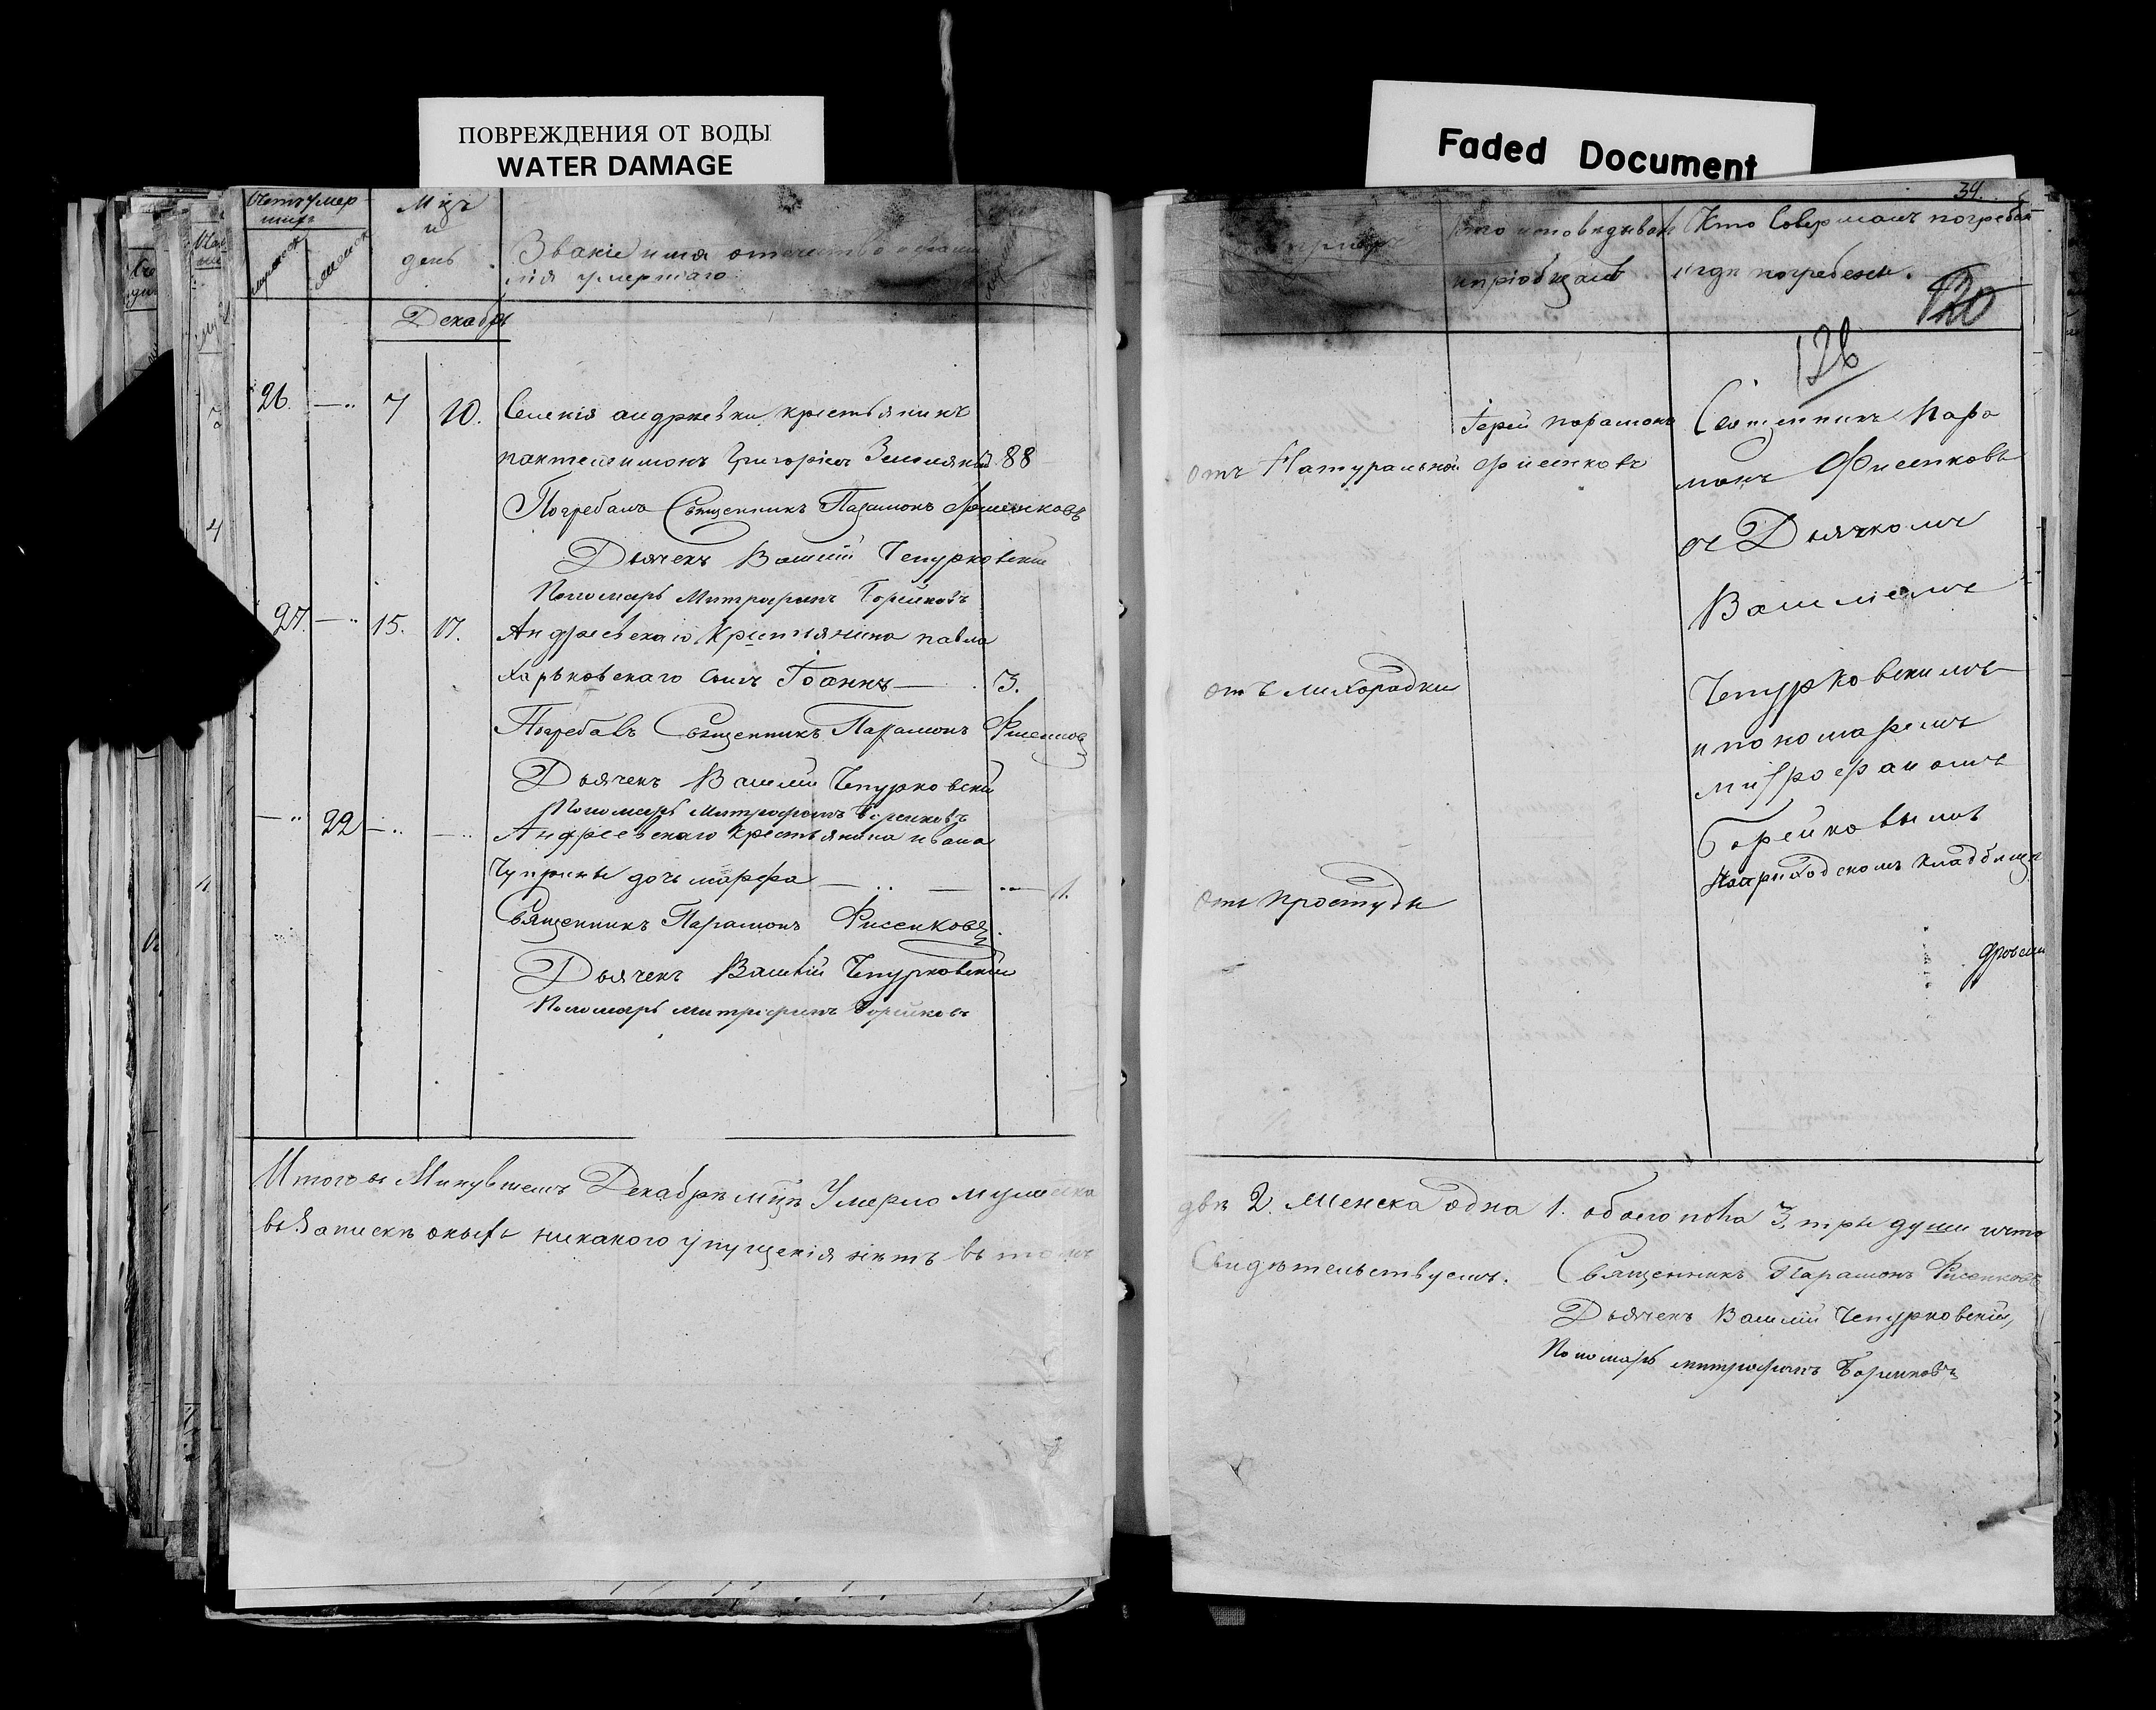 ПОВРЕЖДЕНИЯ ОТ ВОДЫ
WATER DAMAGE
Faded Document
Счетъ умер
шихъ
мужеска
женска
Мцъ
и
день
Званіе имя отечество и фами
лія умершаго
Декабрь
26. — 7 10. Селенія андреевки крестьянинъ
пантелеимонъ Григоріевъ 88
Погребалъ Священникъ Парамонъ Фисенковъ
Дьячекъ Василій Чепурковскій
Пономарь Митрофанъ Горейковъ
27. — 15. 17. Андреевскаго крестьянина павла
Харьковскаго сынъ Іоаннъ — 3.
Погребалъ Священникъ Парамонъ Фисенковъ
Дьячекъ Василій Чепурковскій
Пономарь Митрофанъ Горейковъ
— 22 — — Андреевскаго крестьянина ивана
Чуприны дочь марфа — — — 1.
Священникъ Парамонъ Фисенковъ
Дьячекъ Василій Чепурковскій
Пономарь митрофанъ Горейковъ
Итого въ Минувшемъ Декабрѣ мцѣ Умерло мужеска
въ Запискѣ оныхъ никакого упущенія нѣтъ въ томъ
34.
Кто исповѣдывалъ
и пріобщалъ
Кто Совершалъ погребен
и гдѣ погребены.
120
126
отъ Натуральной
Іерей парамонъ
Фисенковъ
Священникъ Пара
монъ Фисенковъ
съ Дьячкомъ
Василіемъ
Чепурковскимъ
и пономаремъ
митрофаномъ
Горейковымъ
на приходскомъ кладбищѣ
отъ лихорадки
отъ простуды
двѣ 2. женска одна 1. обоего пола 3, три души что
Свидѣтельствуемъ. Священникъ Парамонъ Фисенковъ
Дьячекъ Василій Чепурковскій,
Пономарь митрофанъ Горейковъ